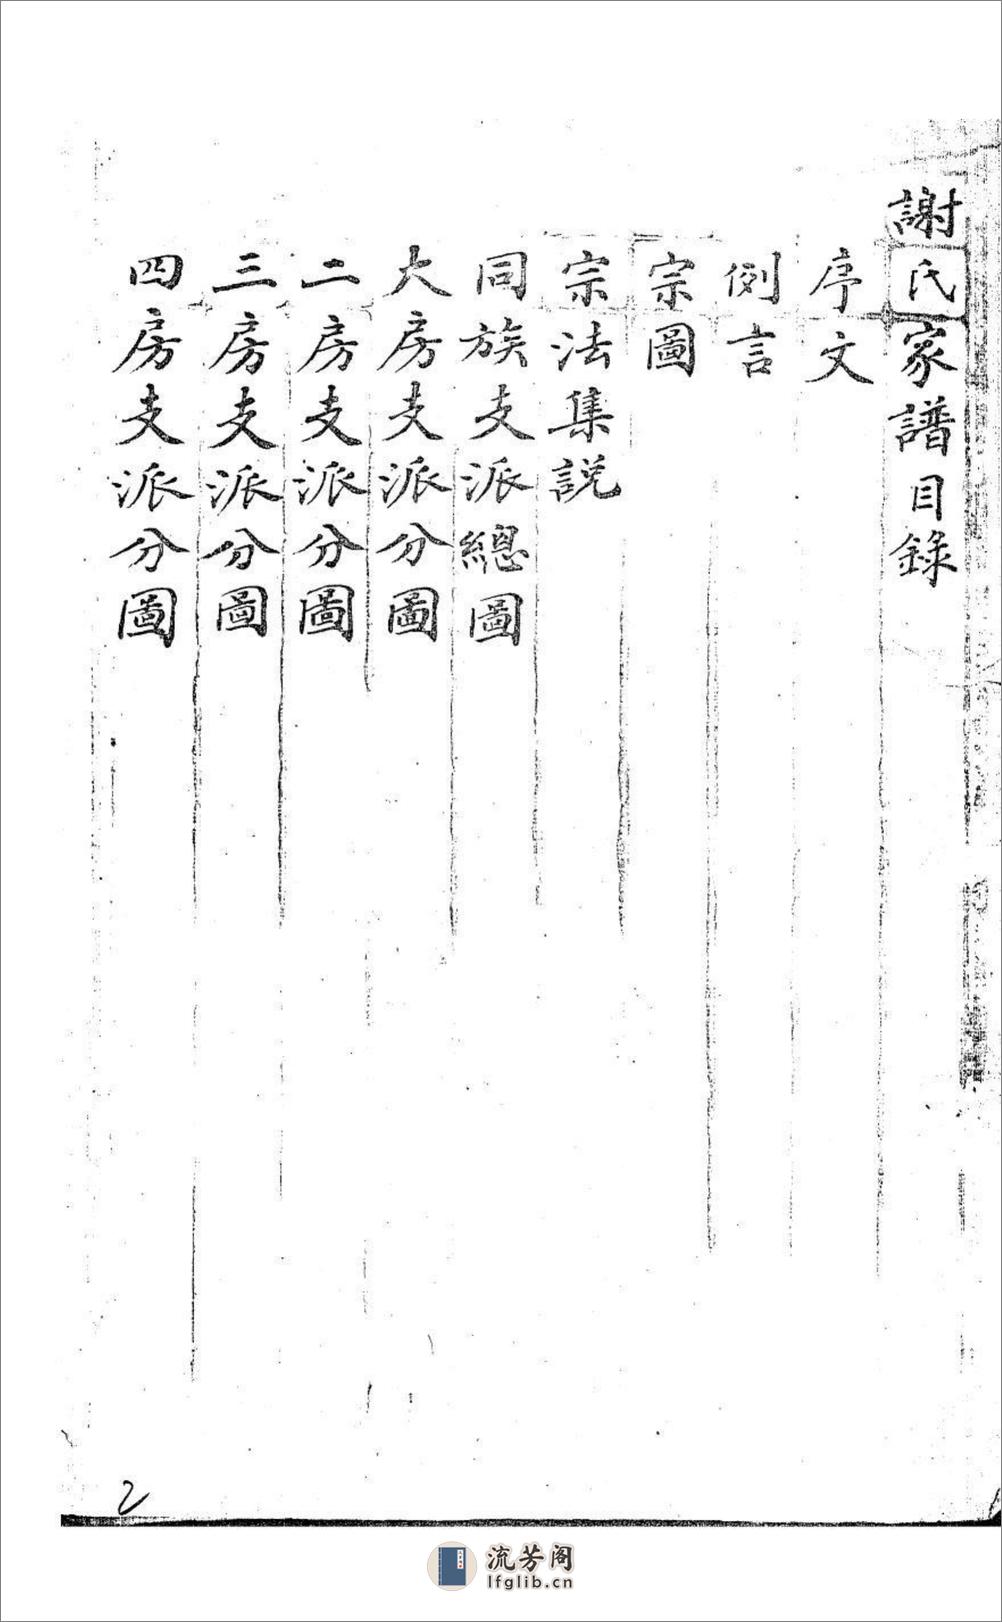 謝氏家譜目錄
序文
例言
宗圖
宗法集説
同族支派總圖
大房支派分圖
二房支派分圖
三房支派分圖
四房支派分圖
2
流芳阁
lfglib.cn